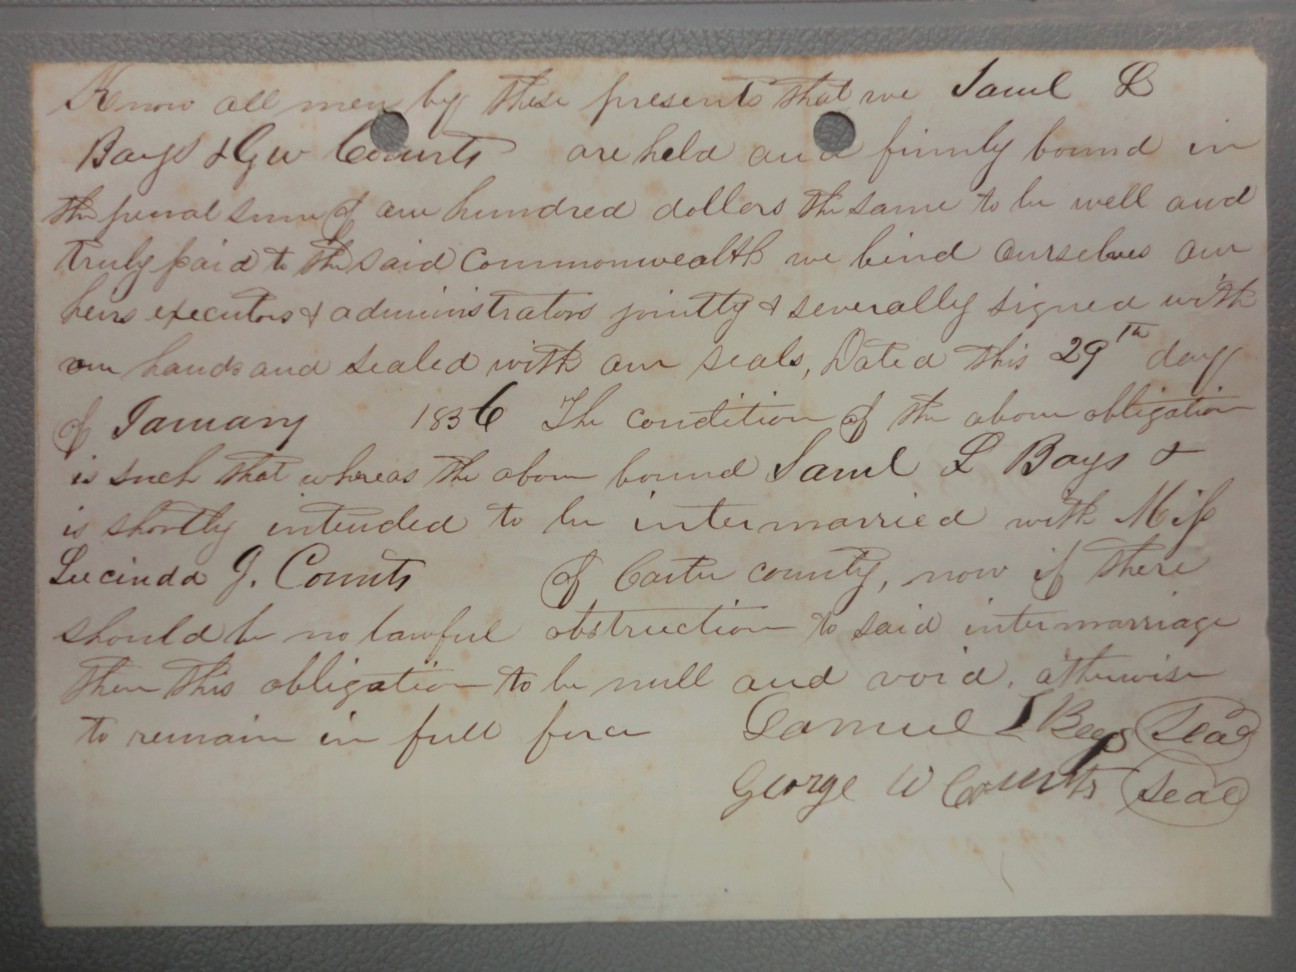 Know all men by these presents that we Saml L
Bays & G W Counts are held and firmly bound in
the penal sum of one hundred dollars the same to be well and
truly paid to the said commonwealth we bind ourselves our
heirs executors & administrators jointly & severally signed with
our hands and sealed with our seals, Dated this 29th day
of January 1856 The condition of the above obligation
is such that whereas the above bound Saml L Bays &
is shortly intended to be intermarried with Miss
Lucinda J. Counts of Carter county, now if there
should be no lawful obstruction to said intermarriage
then this obligation to be null and void, otherwise
to remain in full force Samuel L Bays Seal
George W Counts Seal